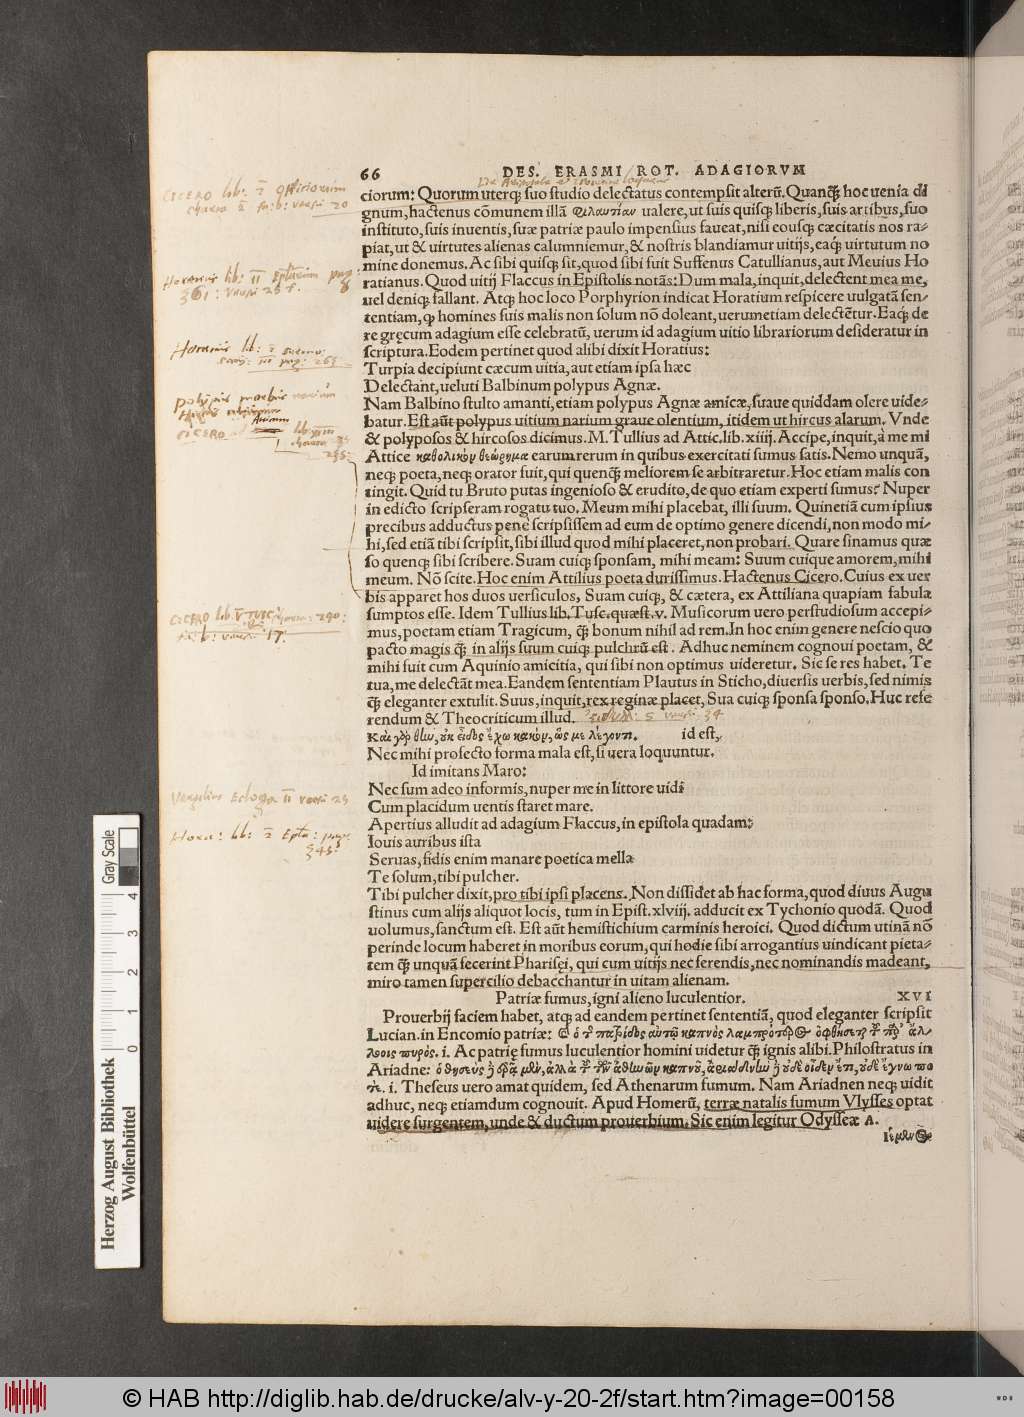 66 DES. ERASMI ROT. ADAGIORVM
ciorum: Quorum uterq; suo studio delectatus contempsit alterũ. Quanq̃ hoc uenia di
gnum, hactenus cõmunem illã Φιλαυτίαν ualere, ut suis quisq; liberis, suis artibus, suo
instituto, suis inuentis, suæ patriæ paulo impensius faueat, nisi eousq; cæcitatis nos ra⸗
piat, ut & uirtutes alienas calumniemur, & nostris blandiamur uitijs, eaq; uirtutum no
mine donemus. Ac sibi quisq; sit, quod sibi fuit Suffenus Catullianus, aut Meuius Ho
ratianus. Quod uitij Flaccus in Epistolis notãs: Dum mala, inquit, delectent mea me,
uel deniq; fallant. Atq; hoc loco Porphyrion indicat Horatium respicere uulgatã sen⸗
tentiam, q̃ homines suis malis non solum nõ doleant, uerumetiam delectẽtur. Eaq; de
re gręcum adagium esse celebratũ, uerum id adagium uitio librariorum desideratur in
scriptura. Eodem pertinet quod alibi dixit Horatius:
Turpia decipiunt cæcum uitia, aut etiam ipsa hæc
Delectant, ueluti Balbinum polypus Agnæ.
Nam Balbino stulto amanti, etiam polypus Agnæ amicæ, suaue quiddam olere uide⸗
batur. Est aũt polypus uitium narium graue olentium, itidem ut hircus alarum. Vnde
& polyposos & hircosos dicimus. M. Tullius ad Attic. lib. xiiij. Accipe, inquit, à me mi
Attice καθολικὸν θεώρημα earum rerum in quibus exercitati sumus satis. Nemo unquã,
neq; poeta, neq; orator fuit, qui quenq̃ meliorem se arbitraretur. Hoc etiam malis con
tingit. Quid tu Bruto putas ingenioso & erudito, de quo etiam experti sumus? Nuper
in edicto scripseram rogatu tuo. Meum mihi placebat, illi suum. Quinetiã cum ipsius
precibus adductus pene scripsissem ad eum de optimo genere dicendi, non modo mi⸗
hi, sed etiã tibi scripsit, sibi illud quod mihi placeret, non probari. Quare sinamus quæ
so quenq; sibi scribere. Suam cuiq; sponsam, mihi meam: Suum cuique amorem, mihi
meum. Nõ scite. Hoc enim Attilius poeta durissimus. Hactenus Cicero. Cuius ex uer
bis apparet hos duos uersiculos, Suam cuiq;, & cætera, ex Attiliana quapiam fabula
sumptos esse. Idem Tullius lib. Tusc. quæst. v. Musicorum uero perstudiosum accepi⸗
mus, poetam etiam Tragicum, q̃ bonum nihil ad rem. In hoc enim genere nescio quo
pacto magis q̃ in alijs suum cuiq; pulchrũ est. Adhuc neminem cognoui poetam, &
mihi fuit cum Aquinio amicitia, qui sibi non optimus uideretur. Sic se res habet. Te
tua, me delectãt mea. Eandem sententiam Plautus in Sticho, diuersis uerbis, sed nimis
q̃ eleganter extulit. Suus, inquit, rex reginæ placet, Sua cuiq; sponsa sponso. Huc refe
rendum & Theocriticum illud.
Καὶ γὰρ θlω, οὐκ εἶδος ἔχω κακὸν, ὥς με λέγοντι. id est,
Nec mihi profecto forma mala est, si uera loquuntur.
Id imitans Maro:
Nec sum adeo informis, nuper me in littore uidi
Cum placidum uentis staret mare.
Apertius alludit ad adagium Flaccus, in epistola quadam:
Iouis auribus ista
Seruas, fidis enim manare poetica mella
Te solum, tibi pulcher.
Tibi pulcher dixit, pro tibi ipsi placens. Non dissidet ab hac forma, quod diuus Augu
stinus cum alijs aliquot locis, tum in Epist. xlviij. adducit ex Tychonio quodã. Quod
uolumus, sanctum est. Est aũt hemistichium carminis heroici. Quod dictum utinã nõ
perinde locum haberet in moribus eorum, qui hodie sibi arrogantius uindicant pieta⸗
tem q̃ unquã fecerint Pharisęi, qui cum uitijs nec ferendis, nec nominandis madeant,
miro tamen supercilio debacchantur in uitam alienam.
Patriæ fumus, igni alieno luculentior. XVI
Prouerbij faciem habet, atq; ad eandem pertinet sententiã, quod eleganter scripsit
Lucian. in Encomio patriæ: Καὶ ὁ τῆς πατρίδος αὐτῷ καπνὸς λαμπρότερος ὀφθήσεται τοῦ παρ' ἄλ
λοις πυρός. i. Ac patrię fumus luculentior homini uidetur q̃ ignis alibi. Philostratus in
Ariadne: ὁ θησεὺς
. i. Theseus uero amat quidem, sed Athenarum fumum. Nam Ariadnen neq; uidit
adhuc, neq; etiamdum cognouit. Apud Homerũ, terræ natalis fumum Vlysses optat
uidere surgentem, unde & ductum prouerbium. Sic enim legitur Odysseæ A.
Ἱέμενος
CICERO lib: Officiorum
Horatius lib: II Eplarum pag:
361: versu 23
Horatius lib:
pag: 263
polypus
CICERO ad lib: XIIII
235
CICERO lib: V TVSC: 290:
b: versu 17:
Vergilius Ecloga II versu 25
Hora: lib: Epla: pag:
345:
Gray Scale
0 1 2 3 4
Herzog August Bibliothek
Wolfenbüttel
© HAB http://diglib.hab.de/drucke/alv-y-20-2f/start.htm?image=00158